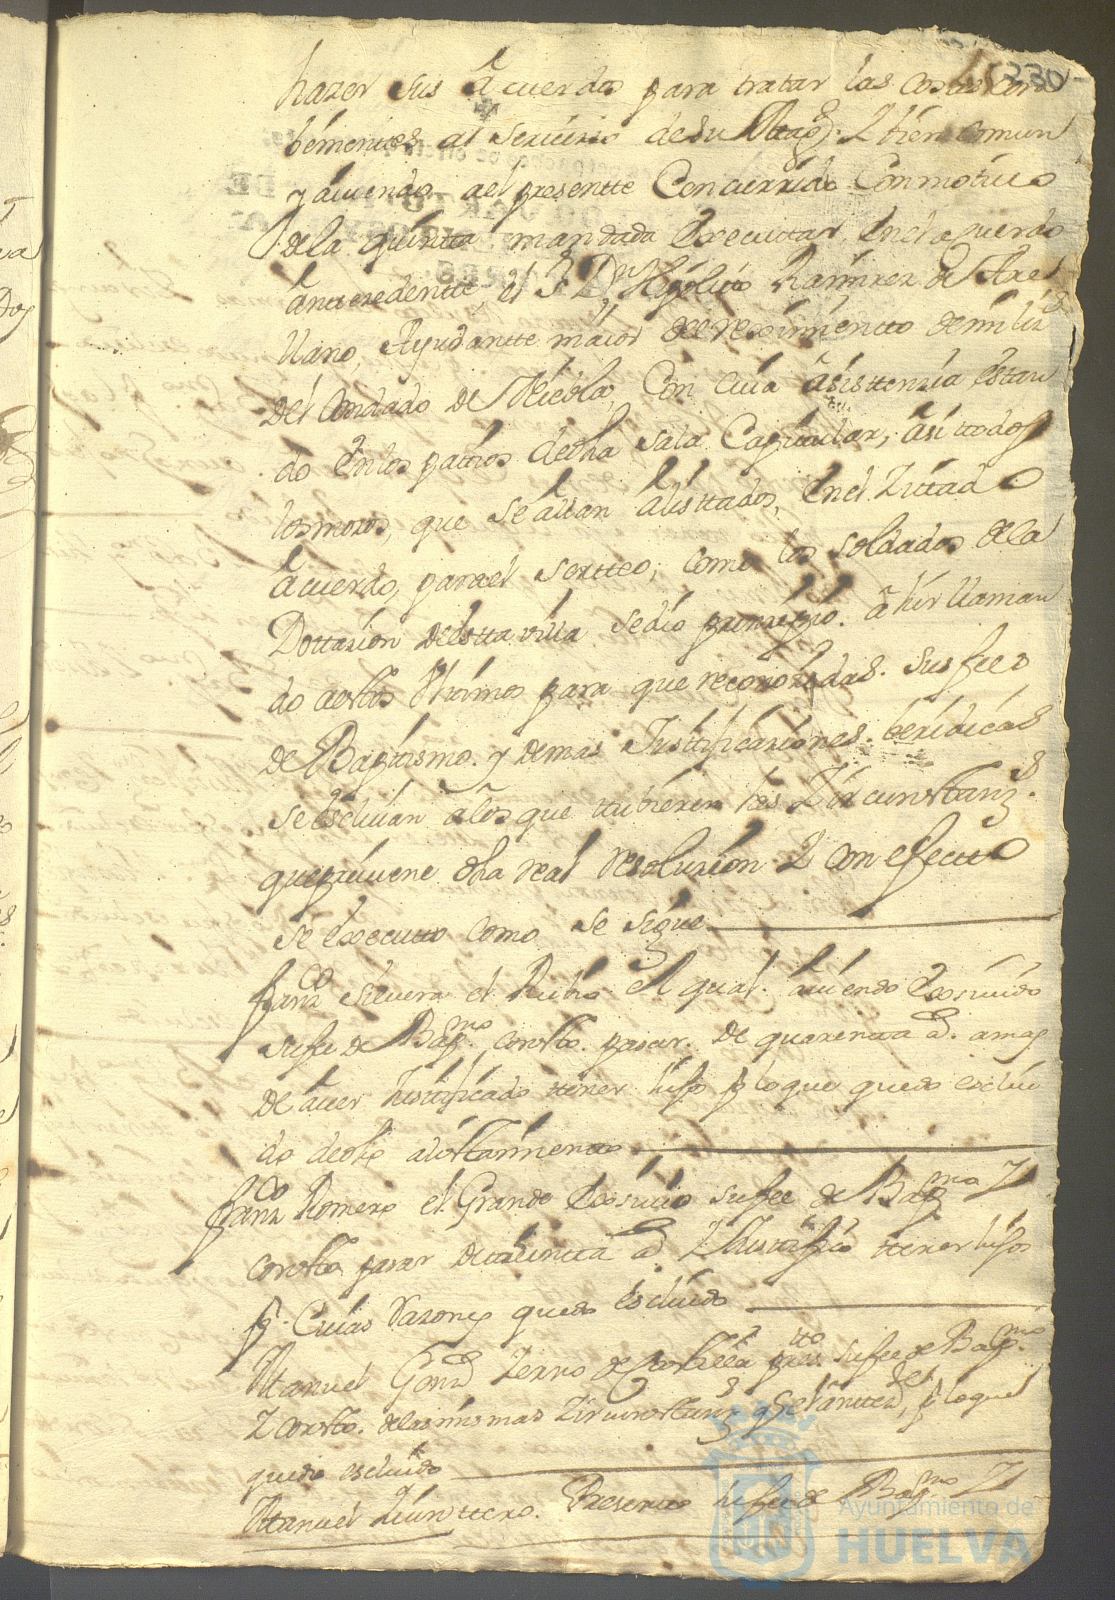 330
hazer sus acuerdos para tratar las cosas con
benientes al servicio de su Magd. Y bien comun
y aviendo al presentte Concurrido Con motivo
de la quintta mandada executtar, en el acuerdo
anttezedentte, el Sr. Dn. Hipolito Ramirez de Arel
llano, Ayudantte maior del reximientto de miliz.s
del Condado de Nieola, Con cuia asisttenzia estan
do en los pattios de dha sala Capitular, asi ttodos
los mozos, que se allan alisttados, en el Zittado
acuerdo, para el sortteo, como los soldados de la
Dottazion de estta villa se dio prinzipio a hir llaman
do a esttos Ultimos para que reconozidas sus fees
de Bapttismo y demas Justtificaziones beridicas
se escluian a los que ttubieren las Zircunsttanz.s
que previene dha real resoluzion Y con efectto
se executto como se sigue
Franco Silvera el Rubio el qual aviendo exsivido
su fee de Bapmo consttó pasar de quarentta as. a mas
de aver Justtificado ttener hijos p lo que quedo esclui
do de dho alisttamientto
Franco Romero el Grande exsivio su fee de Bapmo Y
consttó pasar de quarentta as Y Justtifico ttener hijos
pr. Cuias razones quedo escluido
Manuel Gonz Yerno de presstto su fee de Bapmo
Y consttó de las mismas Zircunsttanz.s q el antted.te, p lo que
quedo escluido
Manuel Quinttero Presentto su fee de Bapmo Y
Ayuntamiento de
HUELVA